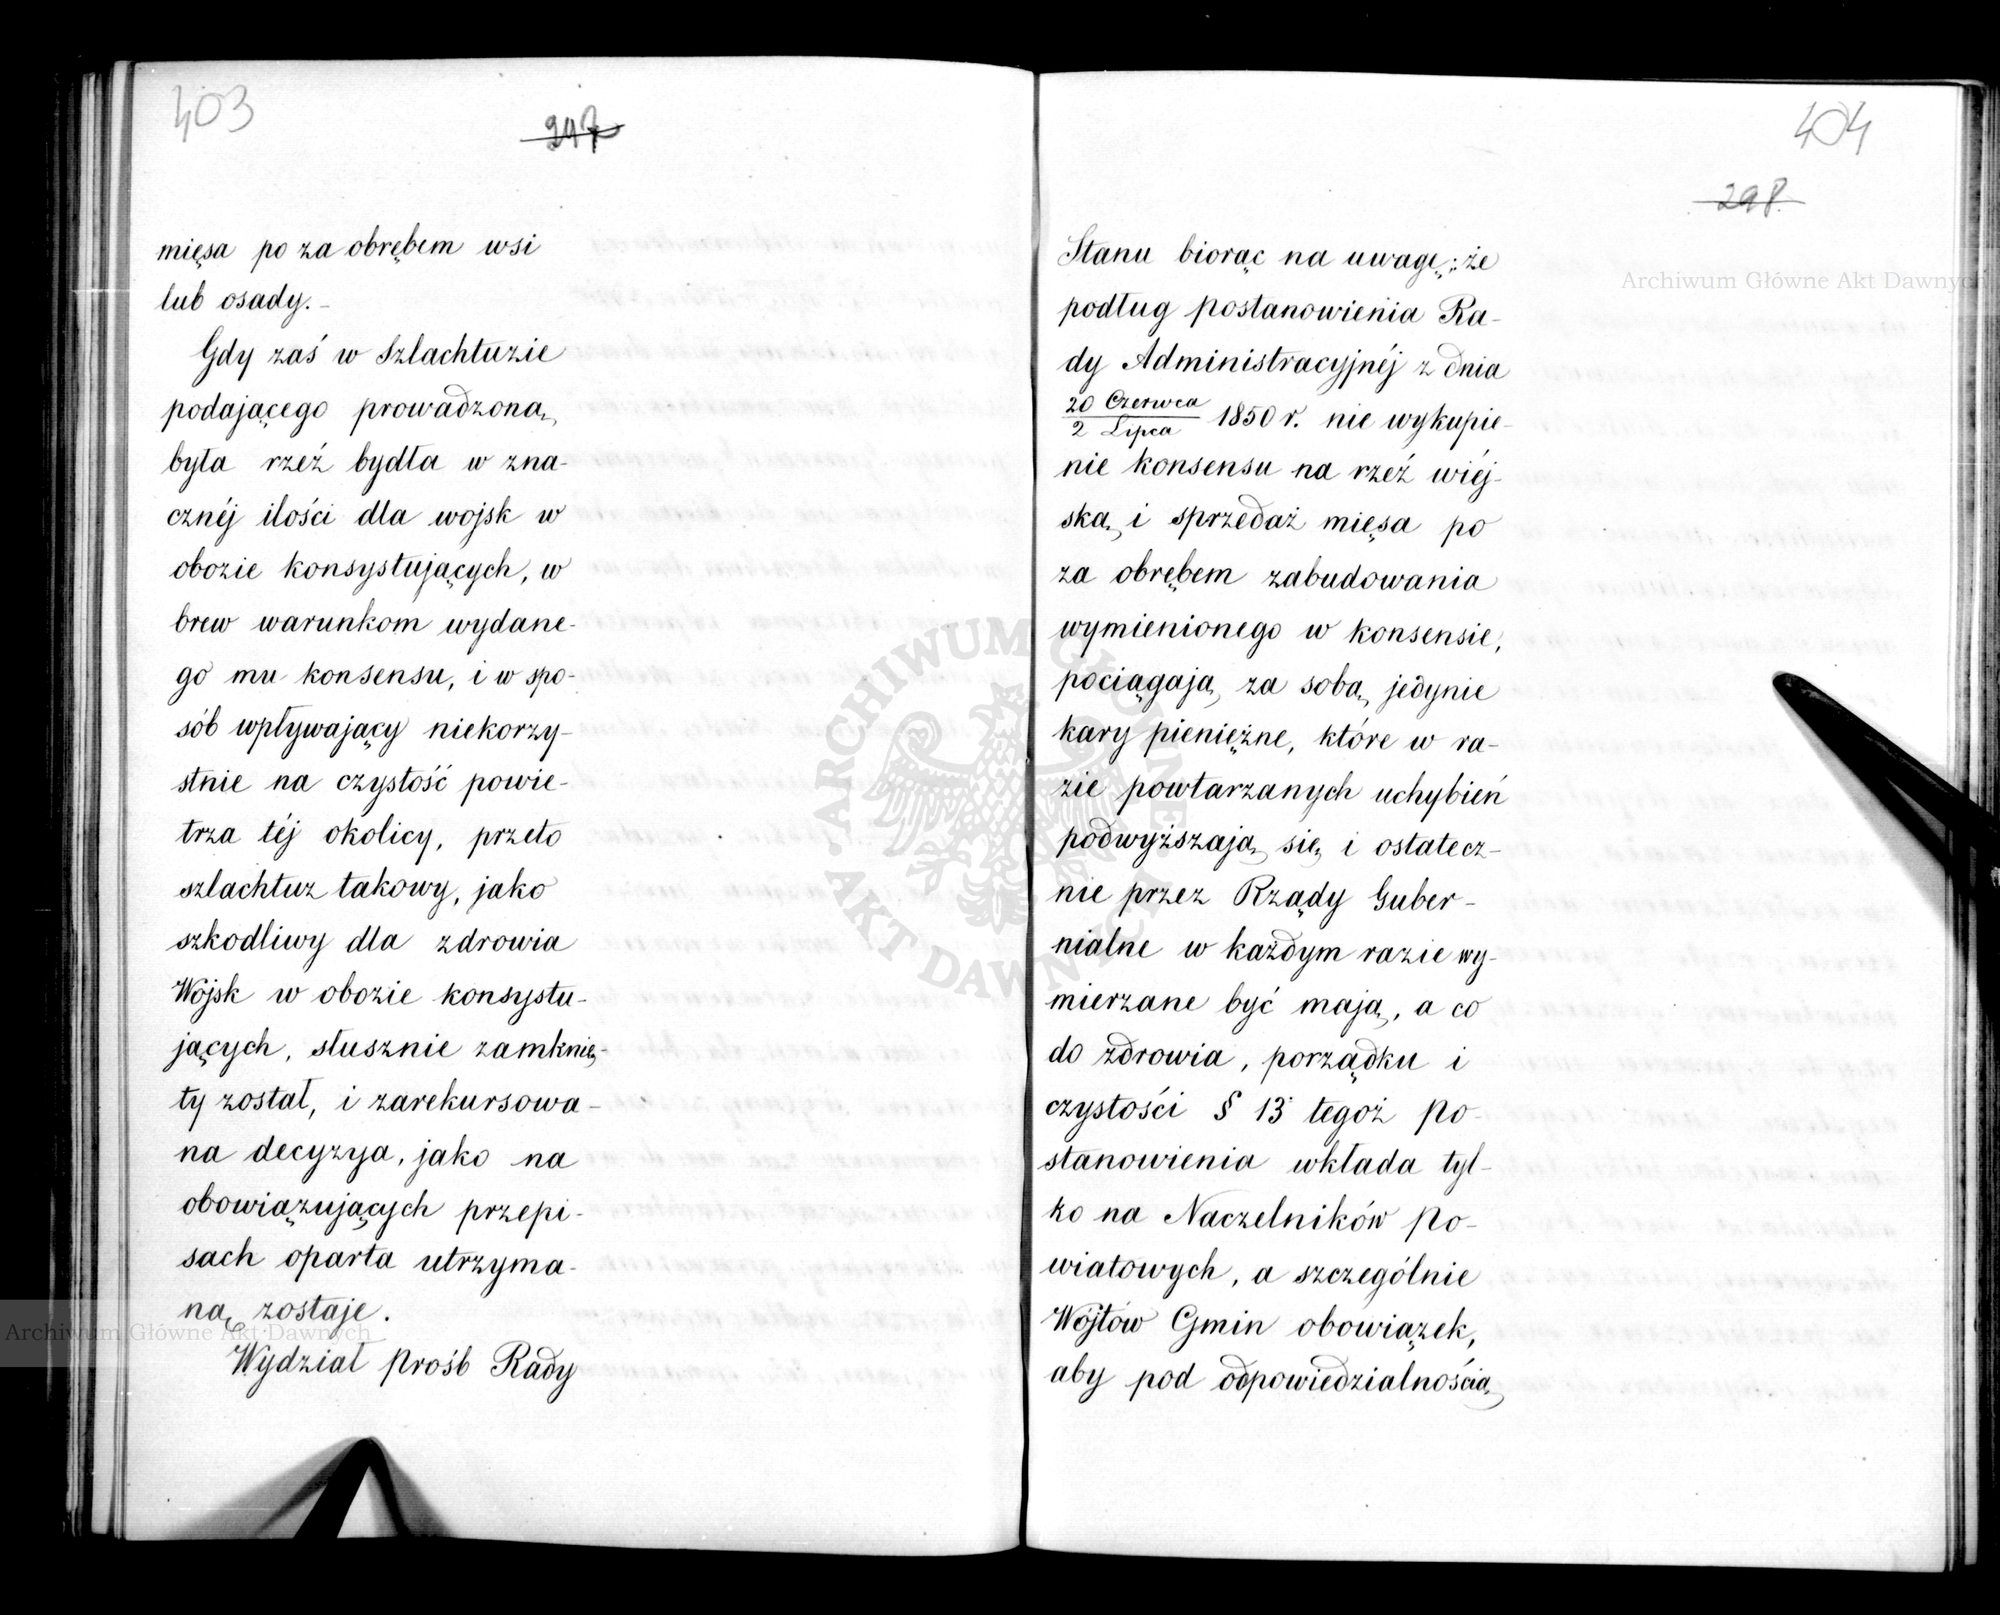 403
297
mięsa po za obrębem wsi
lub osady. -
Gdy zaś w Szlachtuzie
podającego prowadzoną
była rzeź bydła w zna-
cznéj ilości dla wojsk w
obozie konsystujących, w
brew warunkom wydane-
go mu konsensu, i w spo-
sób wpływający niekorzy-
stnie na czystość powie-
trza téj okolicy, przeto
szlachtuz takowy, jako
szkodliwy dla zdrowia
Wojsk w obozie konsystu-
jących, słusznie zamknię-
ty został, i zarekursowa-
na decyzya, jako na
obowiązujących przepi-
sach oparta utrzyma-
ną zostaje.
Wydział Prośb Rady
404
298.
Stanu biorąc na uwagę; że
podług postanowienia Ra-
dy Administracyjnéj z dnia
20 Czerwca
2 Lipca 1850 r. nie wykupie-
nie konsensu na rzeź wiéj-
ską i sprzedaż mięsa po
za obrębem zabudowania
wymienionego w konsensie,
pociągają za sobą jedynie
kary pieniężne, które w ra-
zie powtarzanych uchybień
podwyższają się i ostatecz-
nie przez Rządy Guber-
nialne w każdym razie wy-
mierzane być mają, a co
do zdrowia, porządku i
czystości § 13 tegoż Po-
stanowienia wkłada tyl-
ko na Naczelników Po-
wiatowych, a szczególnie
Wójtów Gmin obowiązek,
aby pod odpowiedzialnością
Archiwum Główne Akt Dawnych
Archiwum Główne Akt Dawnych
ARCHIWUM GŁÓWNE AKT DAWNYCH